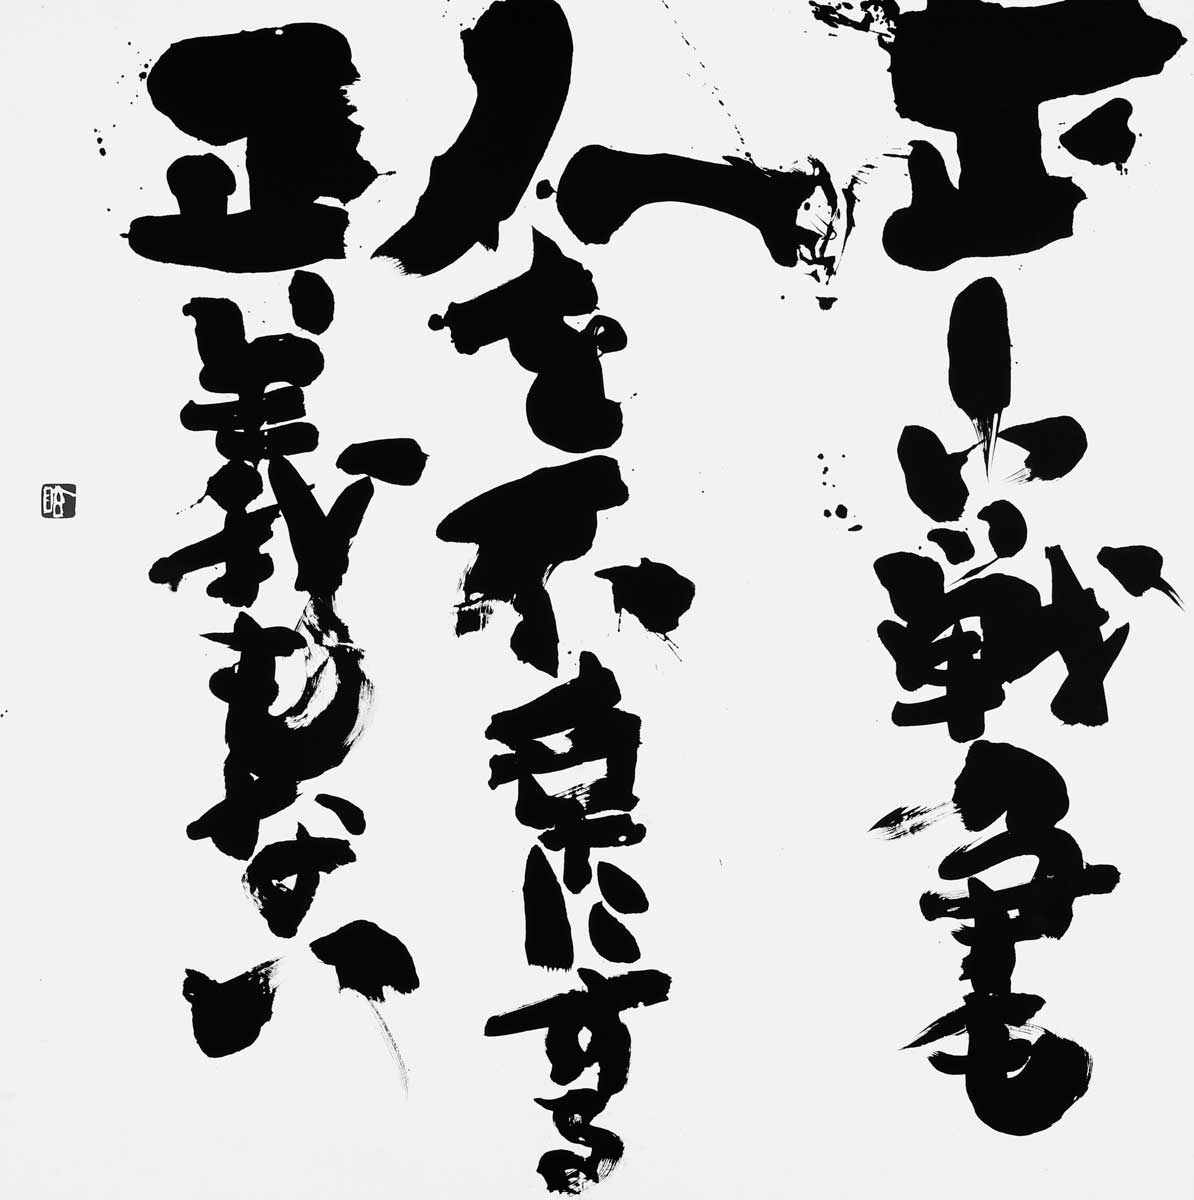 正しい戦争も
人を不幸にする
正義
ない